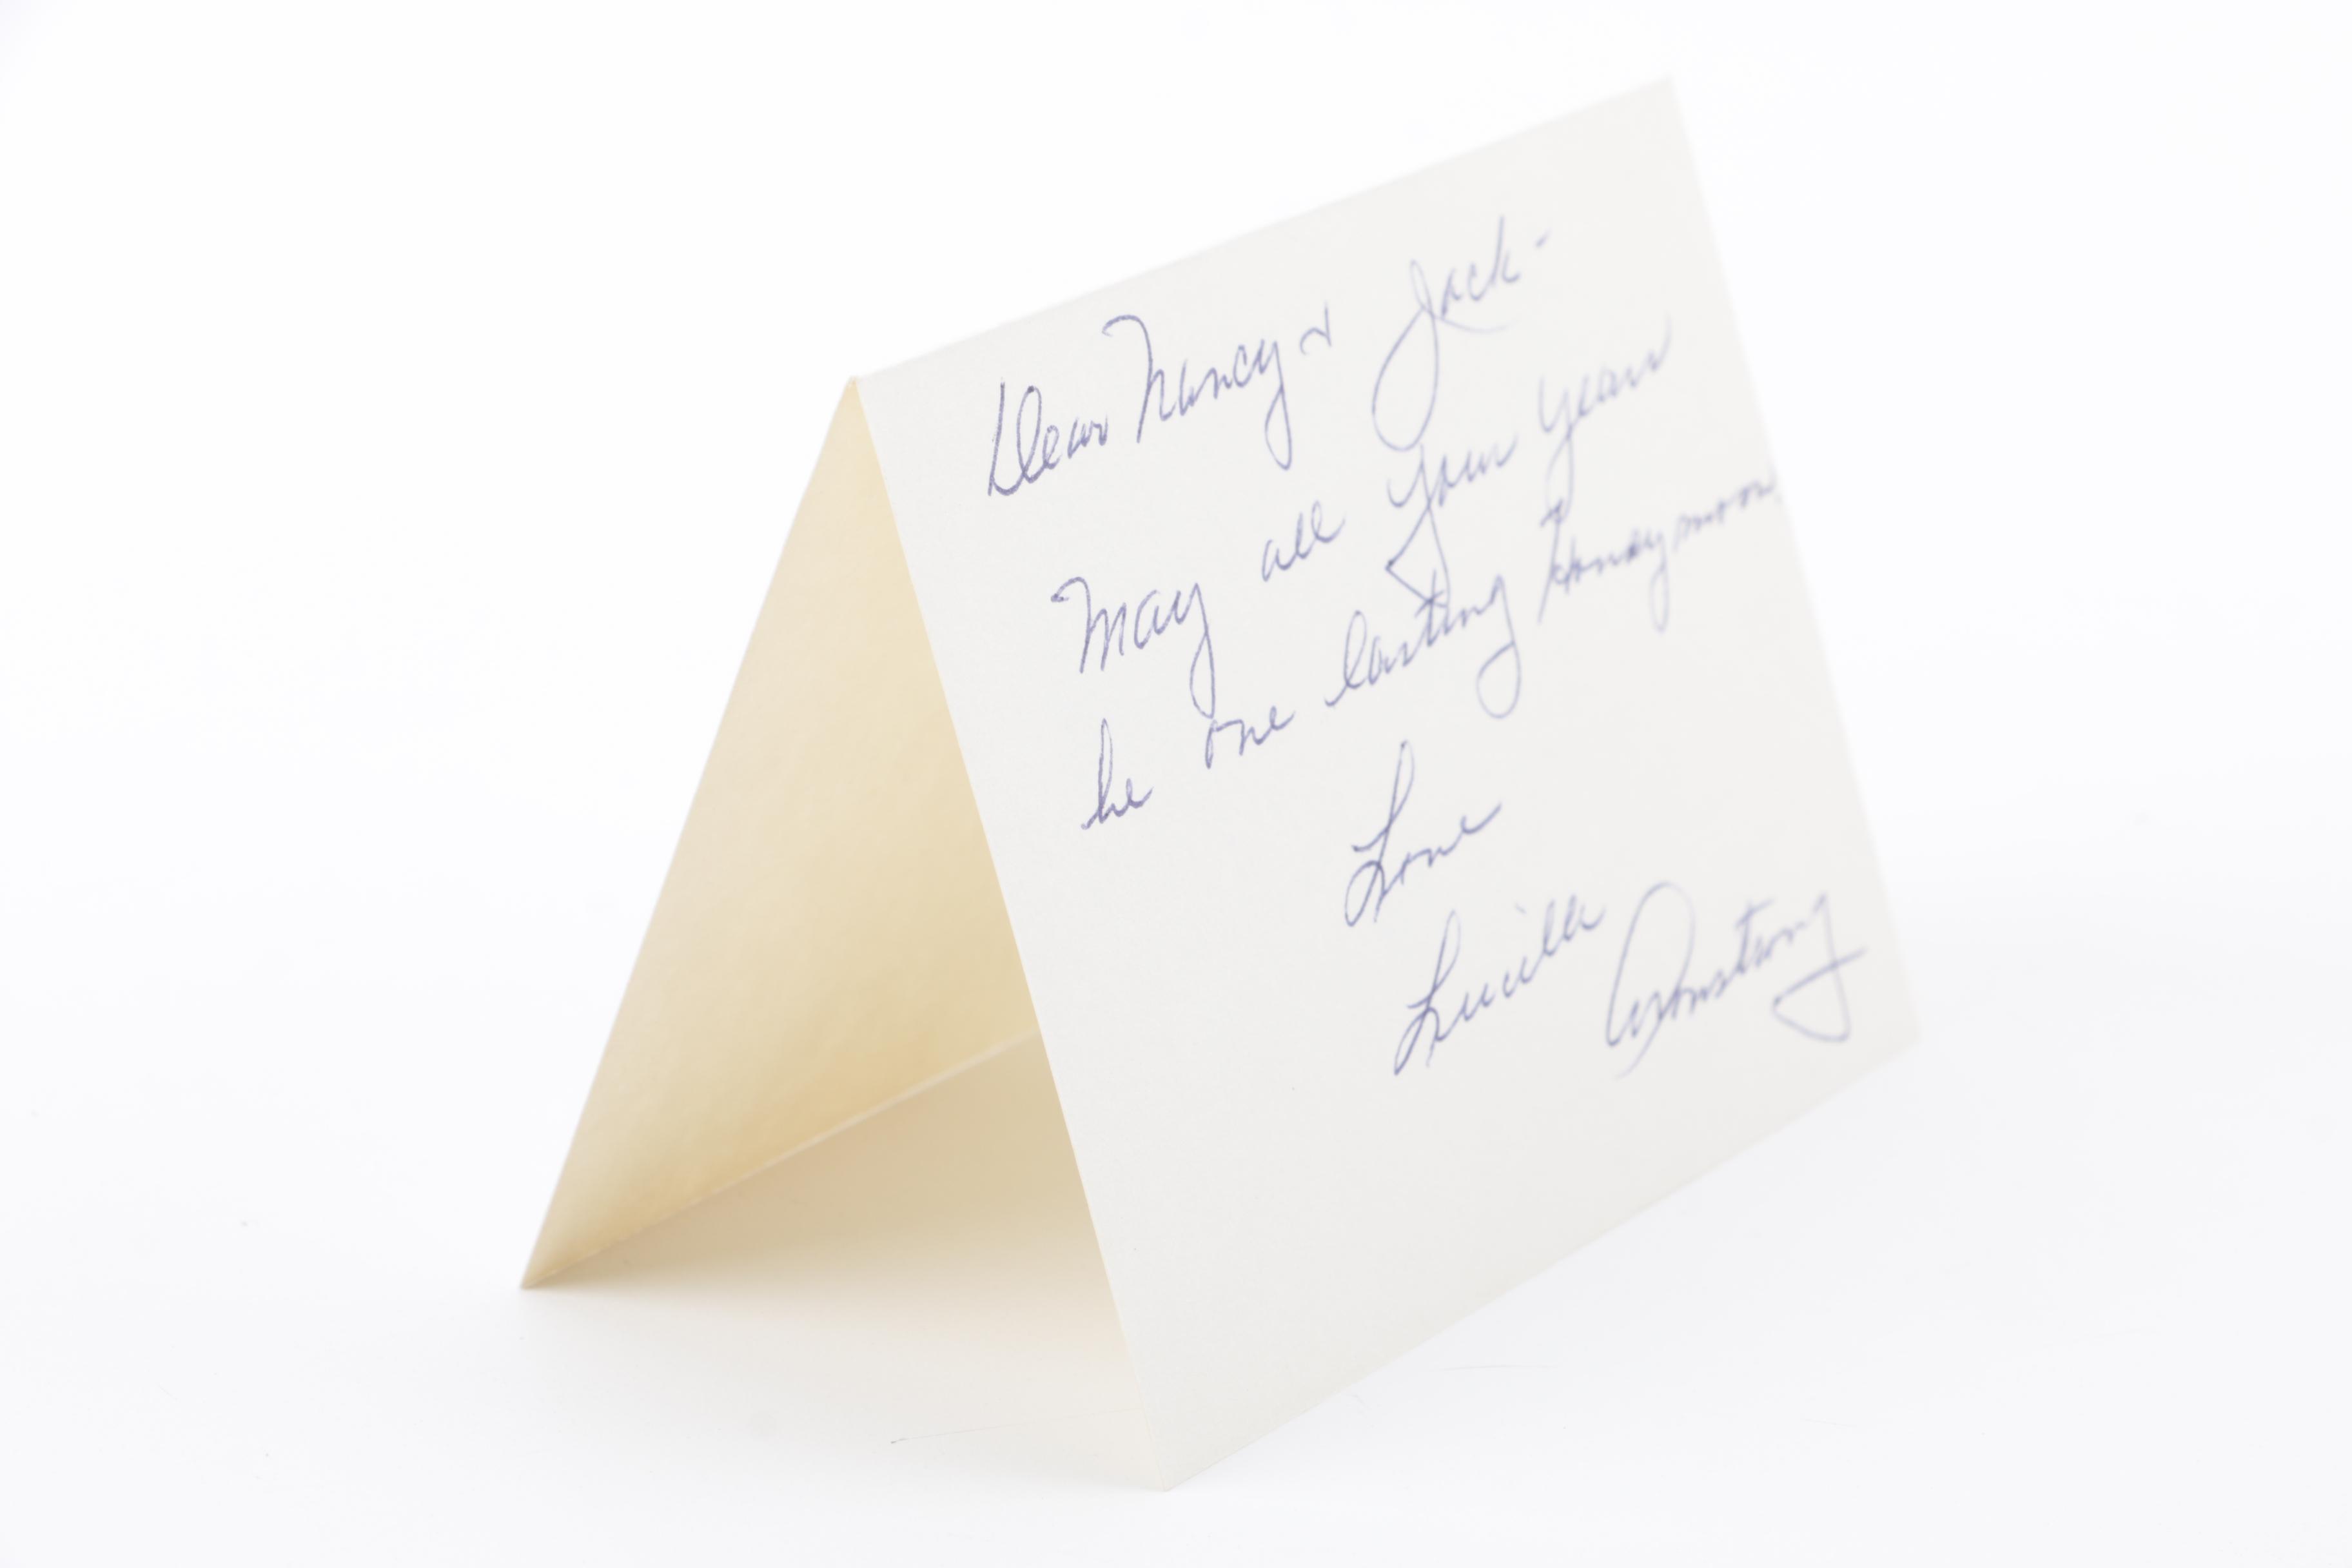 Dear Nancy & Jack -
May all Your Years
be one lasting Honeymoon.
Love
Lucille Armstrong